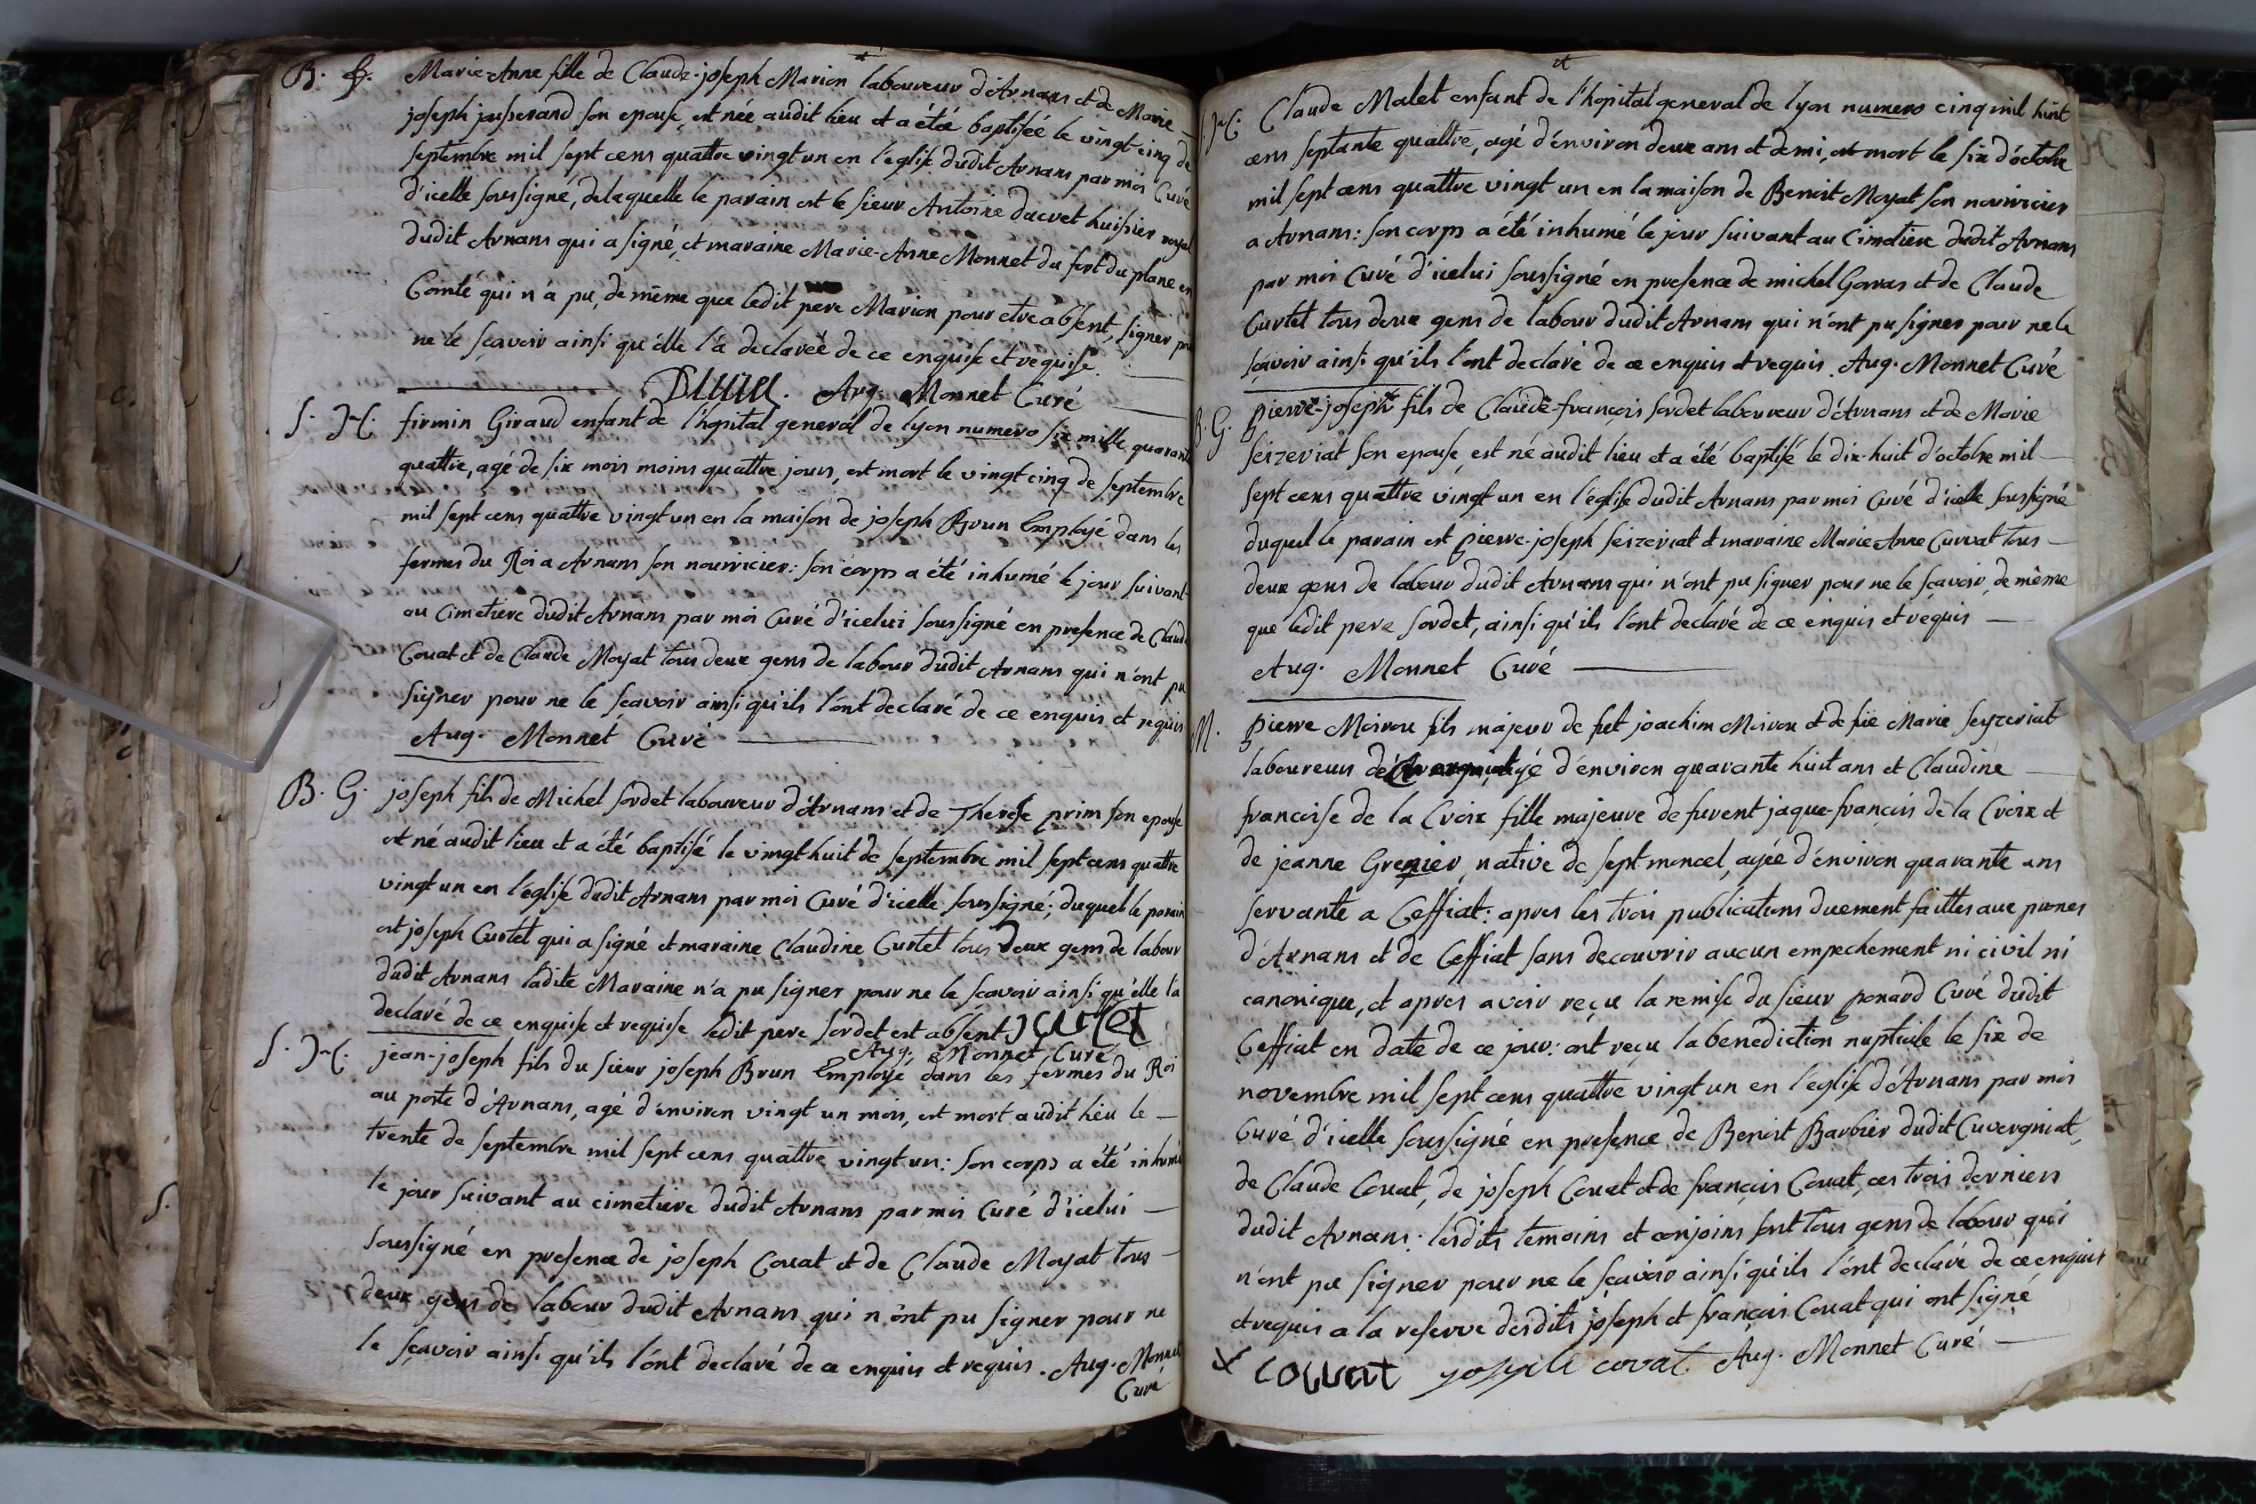 B. f. Marie-Anne fille de Claude-joseph Marion laboureur d'Arnans et de Marie
joseph jauserand son epouse, est née audit lieu et a étée baptisée le vingt cinq de
septembre mil sept cens quattre vingt un en l'eglise dudit Arnans par moi Curé
d'icelle soussigné, delaquelle le parain est le sieur Antoine ducret huissier royal
dudit Arnans qui a signé, et maraine Marie-Anne Monnet du fort du plane en
Comté qui n'a pu, de même que ledit pere Marion pour etre absent, signer pour
ne le sçavoir ainsi qu'elle l'a declareé de ce enquise et requise.
Aug. Monnet Curé
S. firmin Giraud enfant de l'hopital general de lyon numero six mille quarante
quattre, agé de six mois moins quattre jours, est mort le vingt cinq de septembre
mil sept cens quattre vingt un en la maison de joseph Brun Employé dans les
fermes du Roi a Arnans son nourricier: son corps a été inhumé le jour suivant
au Cimetiere dudit Arnans par moi Curé d'icelui soussigné en presence de Claude
Couat et de Claude Moyat tous deux gens de labour dudit Arnans qui n'ont pu
signer pour ne le sçavoir ainsi qu'ils l'ont declaré de ce enquis et requis
Aug. Monnet Curé
B. G. joseph fils de Michel sordet laboureur d'Arnans et de Therese prim son epouse
est né audit lieu et a été baptisé le vingt-huit de septembre mil sept cens quattre
vingt un en l'église dudit Arnans par moi Curé d'icelle soussigné; duquel le parain
est joseph Curtet qui a signé et maraine Claudine Curtet tous deux gens de labour
dudit Arnans ladite Maraine n'a pu signer pour ne le sçavoir ainsi qu'elle la
declaré de ce enquise et requise ledit pere sordet est absent J curtet
Aug. Monnet, Curé
S. jean-joseph fils du sieur joseph Brun Employé dans les fermes du Roi
au poste d'Arnans, agé d'environ vingt un mois, est mort audit lieu le
trente de septembre mil sept cens quattre vingt un: son corps a été inhumé
le jour suivant au cimetiere dudit Arnans par moi Curé d'icelui
soussigné en presence de joseph Couat et de Claude Moyat tous
deux gens de labour dudit Arnans qui n'ont pu signer pour ne
le sçavoir ainsi qu'ils l'ont declaré de ce enquis et requis. Aug. Monnet
Curé
Claude Malet enfant de l'hopital general de lyon numero cinq mil huit
cens septante quattre, agé d'environ deux ans et demi, est mort le six d'octobre
mil sept cens quattre vingt un en la maison de Benoit Moyat son nourricier
a Arnans: son corps a été inhumé le jour suivant au Cimetiere dudit Arnans
par moi Curé d'icelui soussigné en presence de michel Gorras et de Claude
Curtet tous deux gens de labour dudit Arnans qui n'ont pu signer pour ne le
sçavoir ainsi qu'ils l'ont declaré de ce enquis et requis. Aug. Monnet Curé
B. G. pierre-joseph fils de Claude-françois sordet laboureur d'Arnans et de Marie
seizeriat son epouse, est né audit lieu et a été baptisé le dix-huit d'octobre mil
sept cens quattre vingt un en l'église dudit Arnans par moi Curé d'icelle soussigné
duquel le parain est pierre-joseph seizeriat et maraine Marie-Anne Curvat tous
deux gens de labour dudit Arnans qui n'ont pu signer pour ne le sçavoir, de même
que ledit pere sordet, ainsi qu'ils l'ont declaré de ce enquis et requis
Aug. Monnet Curé
M. pierre Moiroux fils majeur de fut joachim Moiroux et de fue Marie seyzeriat
laboureur agé d'environ quarante huit ans et Claudine
francoise de la Croix fille majeure de furent jaque-francois de la Croix et
de jeanne Grenier, native de sept moncel, agée d'environ quarante ans
servante a Ceffiat: apres les trois publications duement faittes aux prones
d'Arnans et de Ceffiat sans decouvrir aucun empechement ni civil ni
canonique, et apres avoir reçu la remise du sieur ponard Curé dudit
Ceffiat en date de ce jour: ont reçu la benediction nuptiale le six de
novembre mil sept cens quattre vingt un en l'eglise d'Arnans par moi
Curé d'icelle soussigné en presence de Benoit Barbier dudit Cuvergniat,
de Claude Couat, de joseph Couat et de françois Couat, ces trois derniers
dudit Arnans: lesdits temoins et conjoins sont tous gens de labour qui
n'ont pu signer pour ne le sçavoir ainsi qu'ils l'ont declaré de ce enquis
et requis a la reserve desdits joseph et françois Couat qui ont signé
couat joseph covat Aug. Monnet Curé